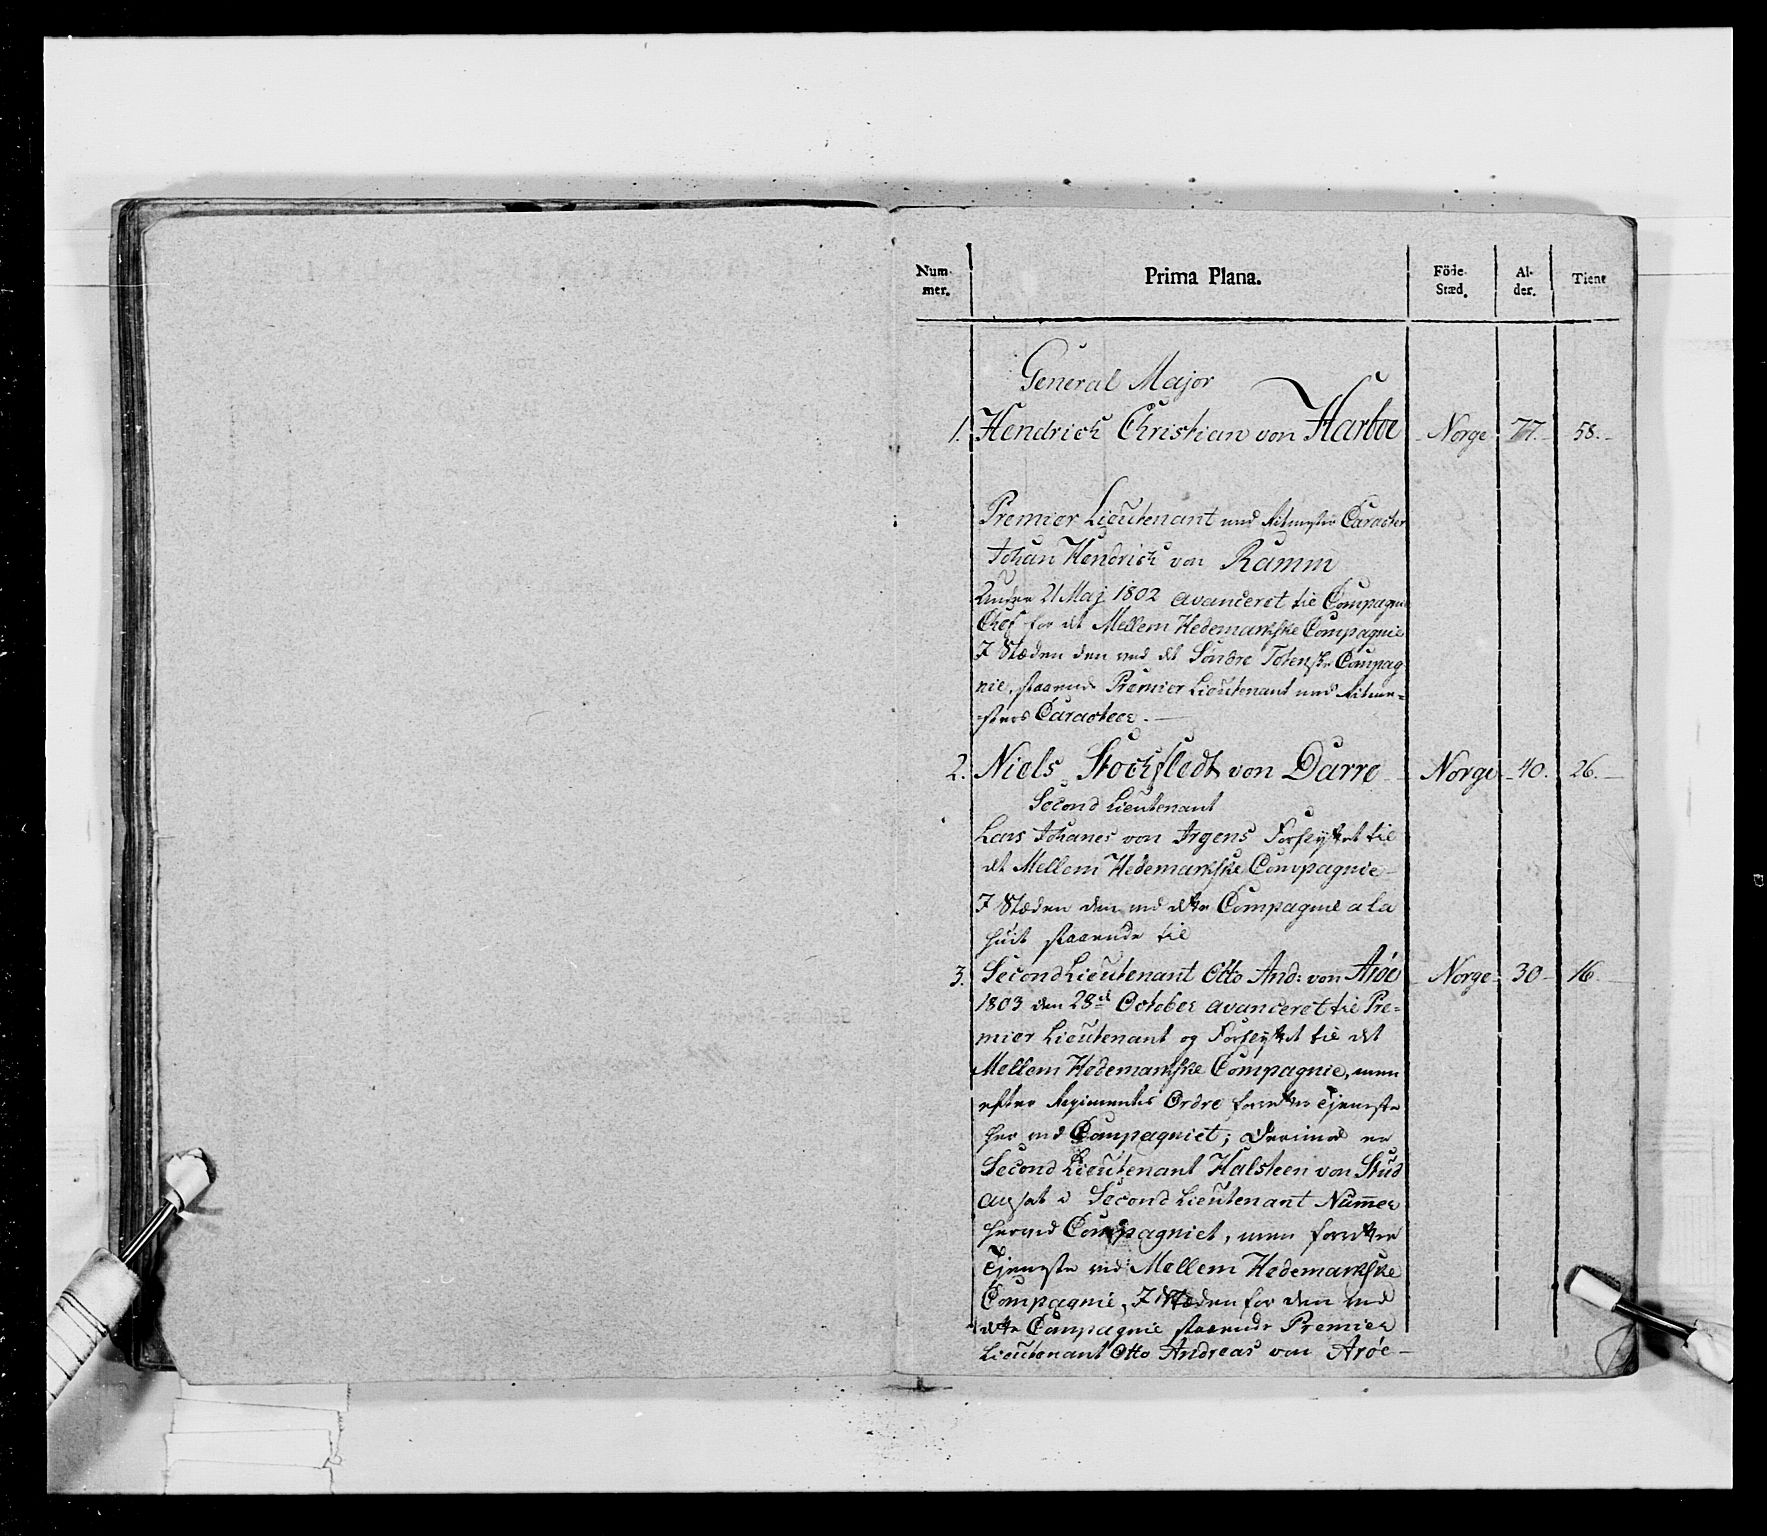 Num- mer. Prima Plana. Föde- Stæd. Al- der. Tient
General Major
1. Hendrich Christian von Harboe Norge 77. 58.
Premier Lieutenant med Ritmester Caracter
Johan Hendrich von Ramm
Under 21 Maj 1802 avanceret til Compagnie
Chef for det Mellem Hedemarkske Compagnie
I Stæden den ved det Søndre Totenske Compag
nie, staaende Premier Lieutenant med Ritme=
sters Caracteer.
2. Niels Stochfledt von Darre Norge 40. 26.
Second Lieutenant
Lars Johanes von Irgens Forflyttet til
det Mellem Hedemarkske Compagnie
I Stæden den ved dette Compagnie a la
suit staaende til
3. Second Lieutenant Otto And: von Arøe Norge 30 16.
1803 den 28de October avanceret til Pre=
mier Lieutenant og Forflyttet til det
Mellem Hedemarkske Compagnie, men
efter Regimentets Ordre forretter Tjeneste
her ved Compagniet; derimod er
Second Lieutenant Halsteen von Stud
ansat i Second Lieutenant Nummer
herved Compagniet, men forretter
Tjeneste ved Mellem Hedemarkske
Compagnie, I Stæden for den ved
dette Compagnie staaende Premier
Lieutenant Otto Andreas von Arøe